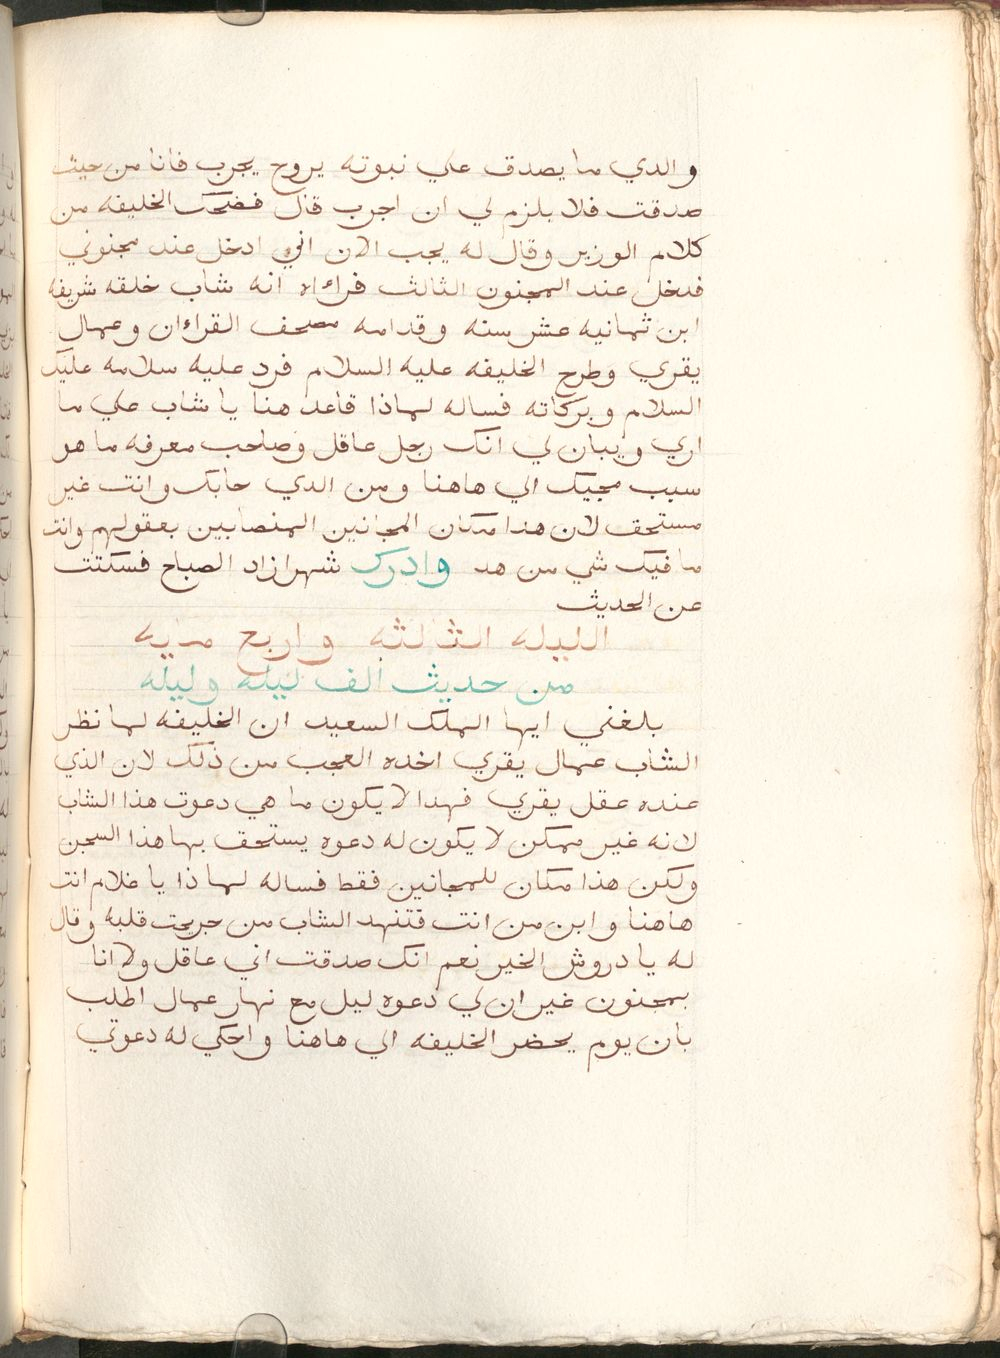 والدي ما يصدق علي نبوته يروح يجرب فانا من حيث
صدقت فلا يلزم لي ان اجرب قال فضحك الخليفه من
كلام الوزير وقال له يجب الان اني ادخل عند مجنوني
فدخل عند المجنون الثالث فراءاه انه شاب خلقه شريفه
ابن ثمانيه عشر سنه وقدامه مصحف القراءان وعمال
يقري وطرح الخليفه عليه السلام فرد عليه سلامه عليك
السلام وبركاته فساله لماذا قاعد هنا يا شاب علي ما
اري ويبان لي انك رجل عاقل وصاحب معرفه ما هو
سبب مجيك الي هاهنا ومن الدي جابك وانت غير
مستحق لان هدا مكان المجانين المنصابين بعقولهم وانت
ما فيك شي من هد وادرك شهرازاد الصباح فسكتت
عن الحديث
الليله الثالثه واربع مايه
من حديث الف ليله وليله
بلغني ايها الملك السعيد ان الخليفه لما نظر
الشاب عمال يقري اخده العجب من ذلك لان الذي
عنده عقل يقري فهدا لا يكون ما هي دعوت هذا الشاب
لانه غير ممكن لا يكون له دعوه يستحق بها هذا السجن
ولكن هذا مكان للمجانين فقط فساله لماذا يا غلام انت
هاهنا وابن من انت فتنهد الشاب من جريحت قلبه وقال
له يا دروش الخير نعم انك صدقت اني عاقل ولا انا
بمجنون غير ان لي دعوه ليل مع نهار عمال اطلب
بان يوم يحضر الخليفه الي هاهنا واحكي له دعوتي